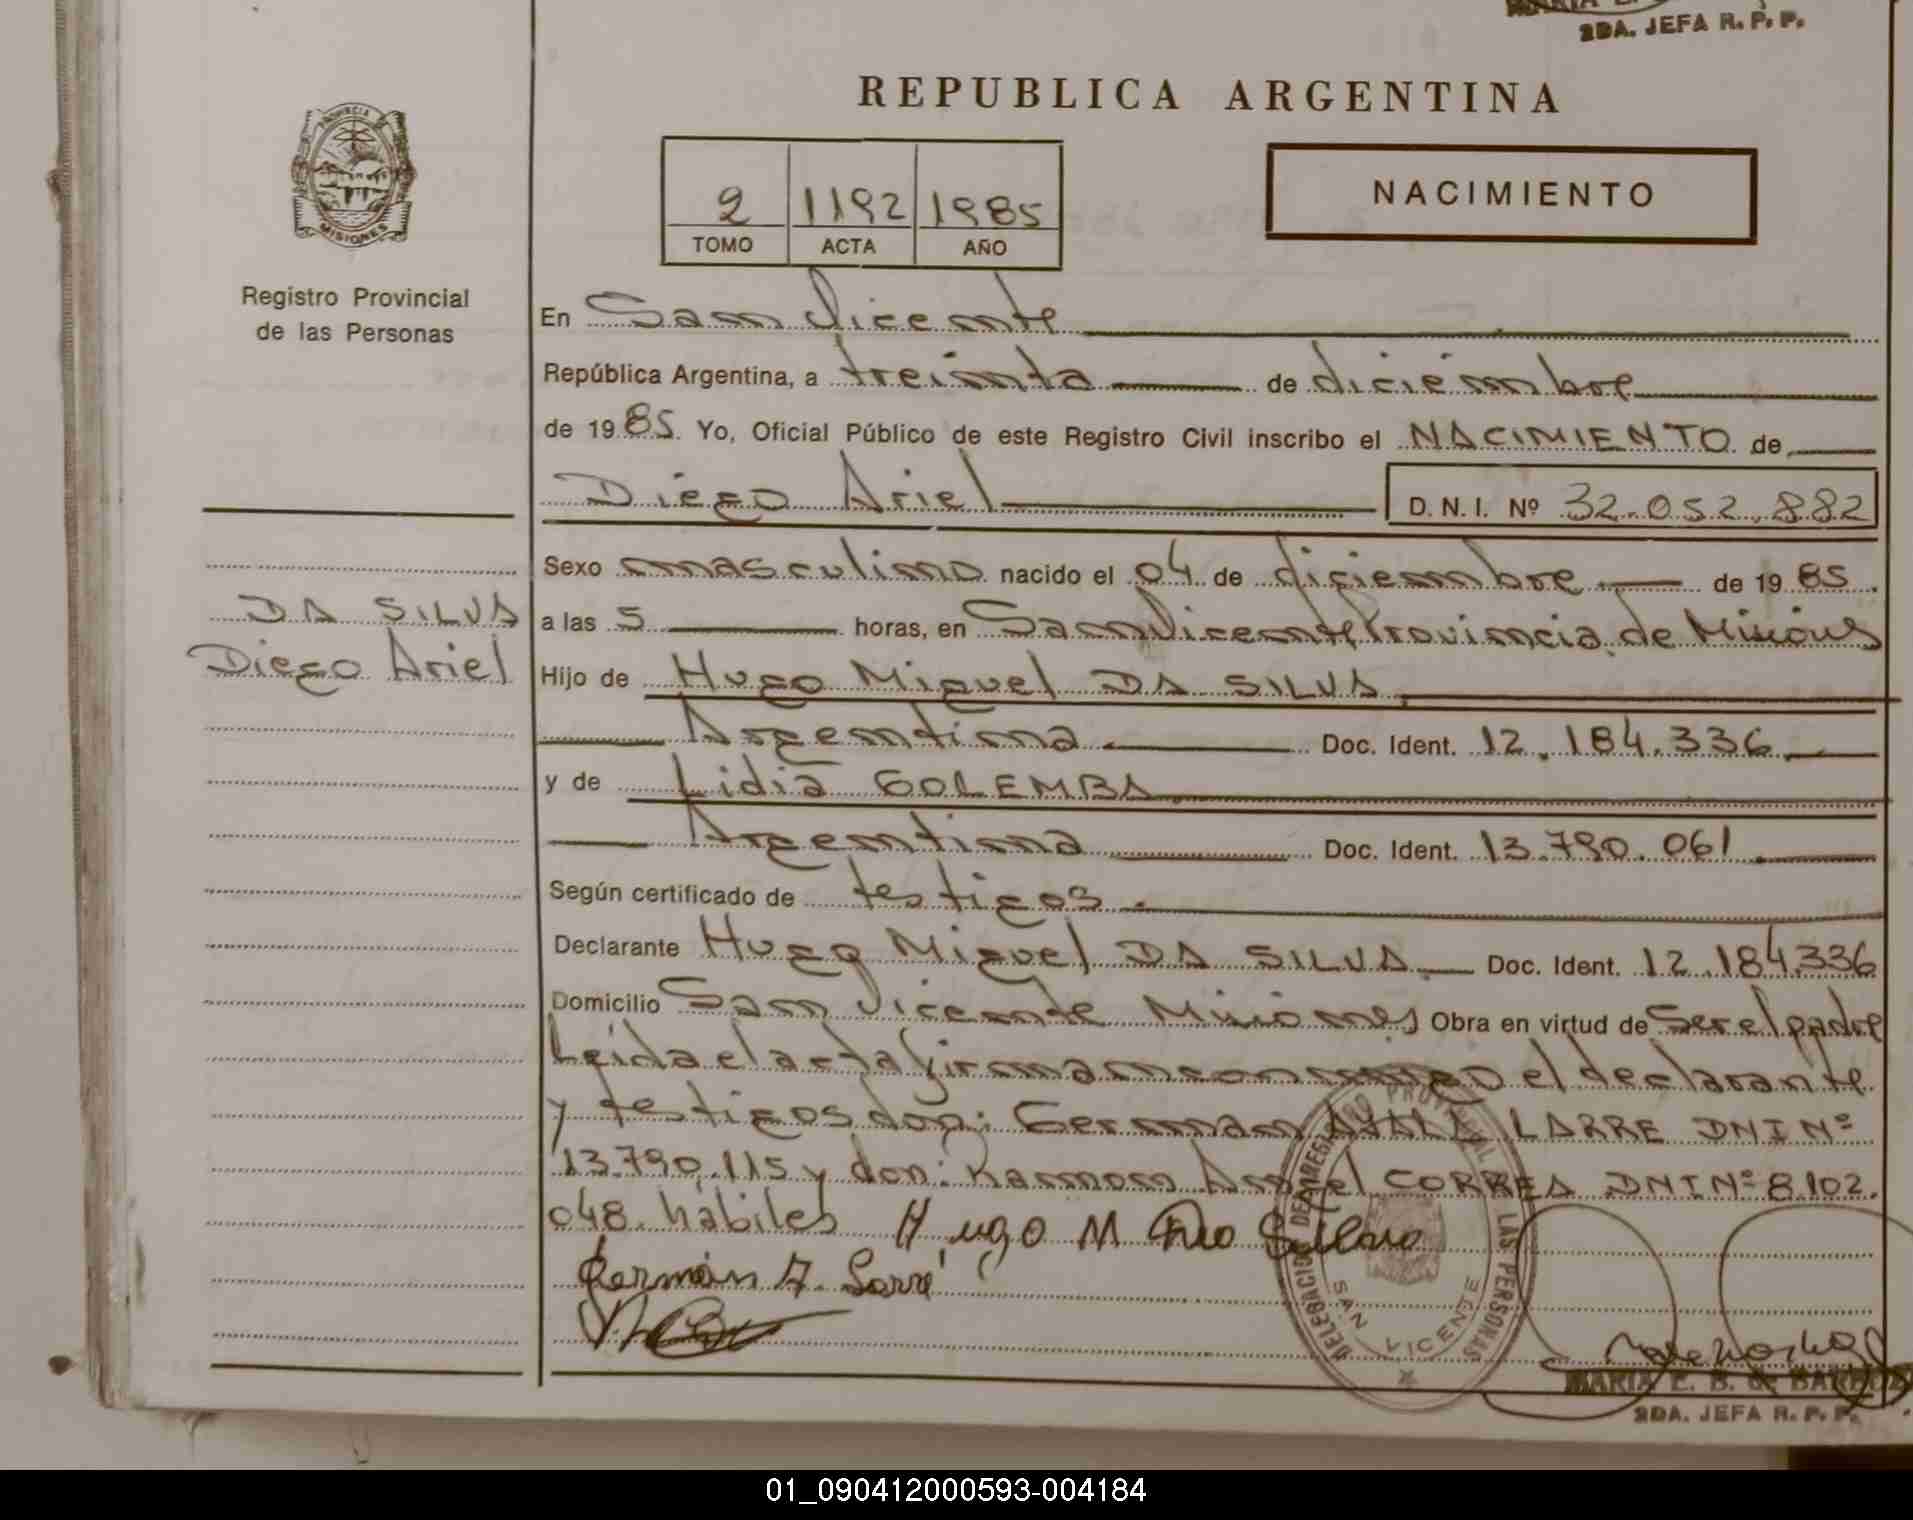 2DA. JEFA R. P. P.
REPUBLICA ARGENTINA
PROVINCIA DE
MISIONES
Registro Provincial
de las Personas
2 1192 1985
TOMO ACTA AÑO
NACIMIENTO
En San Vicente
República Argentina, a treinta de diciembre
de 1985. Yo, Oficial Público de este Registro Civil inscribo el NACIMIENTO de
Diego Ariel D. N. I. Nº 32.052.882
DA SILVA
Diego Ariel
Sexo masculino nacido el 04 de diciembre de 1985.
a las 5 horas, en San Vicente Provincia de Misiones
Hijo de Hugo Miguel DA SILVA
Argentina Doc. Ident. 12.184.336
y de Lidia GOLEMBA
Argentina Doc. Ident. 13.790.061
Según certificado de testigos.
Declarante Hugo Miguel DA SILVA. Doc. Ident. 12.184.336
Domicilio San Vicente Misiones Obra en virtud de Ser el padre
Leida el acta firman conmigo el declarante
y testigos don: German AYALA LARRE DNI Nº
13.790.115 y don: Ramon Angel CORREA DNI Nº 8.102.
048. hábiles Hugo M Da Silva
Germán A. Larré
DELEGACION DEL REGISTRO PROVINCIAL DE LAS PERSONAS
SAN VICENTE
MARIA E. B. G.
2DA. JEFA R. P. P.
01_090412000593-004184